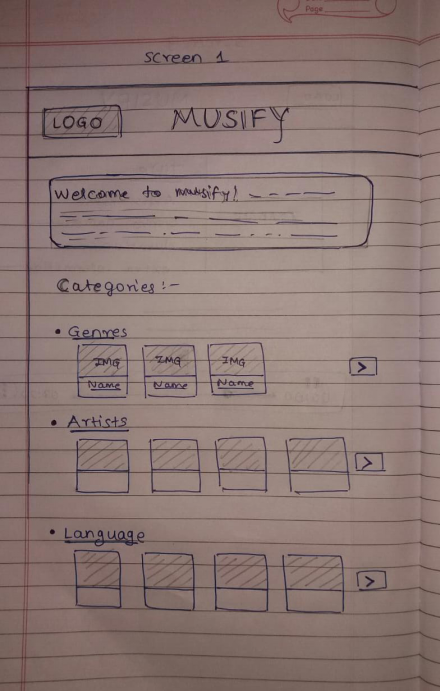 Page
Screen 1
LOGO
MUSIFY
Welcome to musify!
Categories :-
• Genres
IMG IMG IMG
Name Name Name
>
• Artists
>
• Language
>